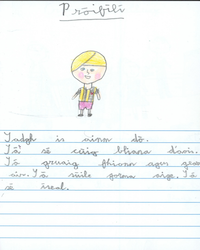 Próifílí
Tadgh is ainm dó.
Tá sé cúig bliana d'aois.
Tá gruaig fhionn agus
air. Tá súile gorma aige. Tá
sé íseal.